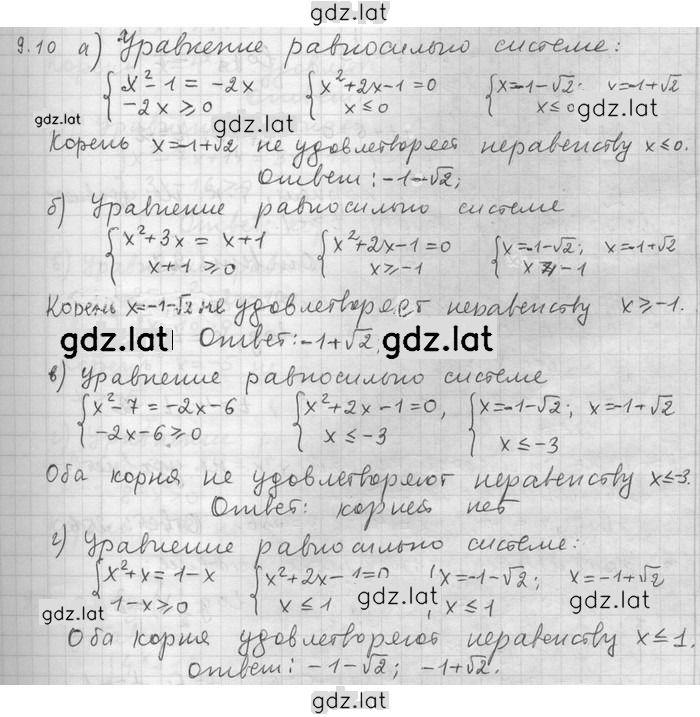 gdz.lat
9.10 а) Уравнение равносильно системе:
{x²-1 = -2x {x²+2x-1=0 {x=-1-√2; x=-1+√2
-2x ≥ 0 x ≤ 0 x ≤ 0
gdz.lat gdz.lat gdz.lat
Корень x=-1+√2 не удовлетворяет неравенству x≤0.
Ответ: -1-√2;
б) Уравнение равносильно системе
{x²+3x = x+1 {x²+2x-1=0 {x=-1-√2; x=-1+√2
x+1 ≥ 0 x ≥ -1 x ≥ -1
Корень x=-1-√2 не удовлетворяет неравенству x ≥ -1.
gdz.lat Ответ: -1+√2 gdz.lat
в) Уравнение равносильно системе
{x²-7 = -2x-6 {x²+2x-1=0, {x=-1-√2; x=-1+√2
-2x-6 ≥ 0 x ≤ -3 x ≤ -3
Оба корня не удовлетворяют неравенству x≤-3.
Ответ: корней нет
г) Уравнение равносильно системе:
{x²+x = 1-x {x²+2x-1=0 {x=-1-√2; x=-1+√2
1-x ≥ 0 x ≤ 1 x ≤ 1
gdz.lat gdz.lat gdz.lat
Оба корня удовлетворяют неравенству x ≤ 1.
Ответ: -1-√2; -1+√2.
gdz.lat